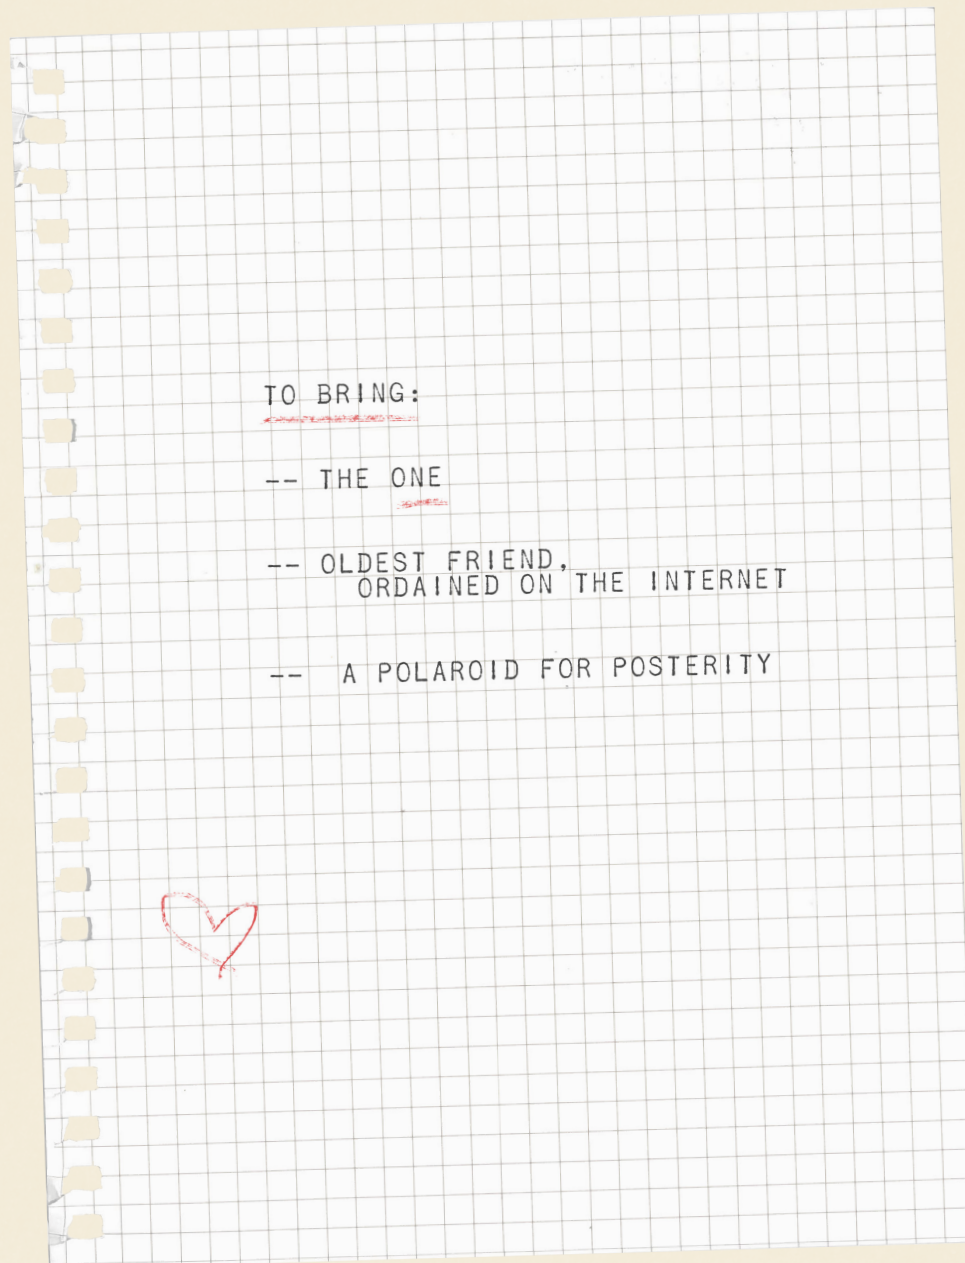 TO BRING:
-- THE ONE
-- OLDEST FRIEND,
ORDAINED ON THE INTERNET
-- A POLAROID FOR POSTERITY